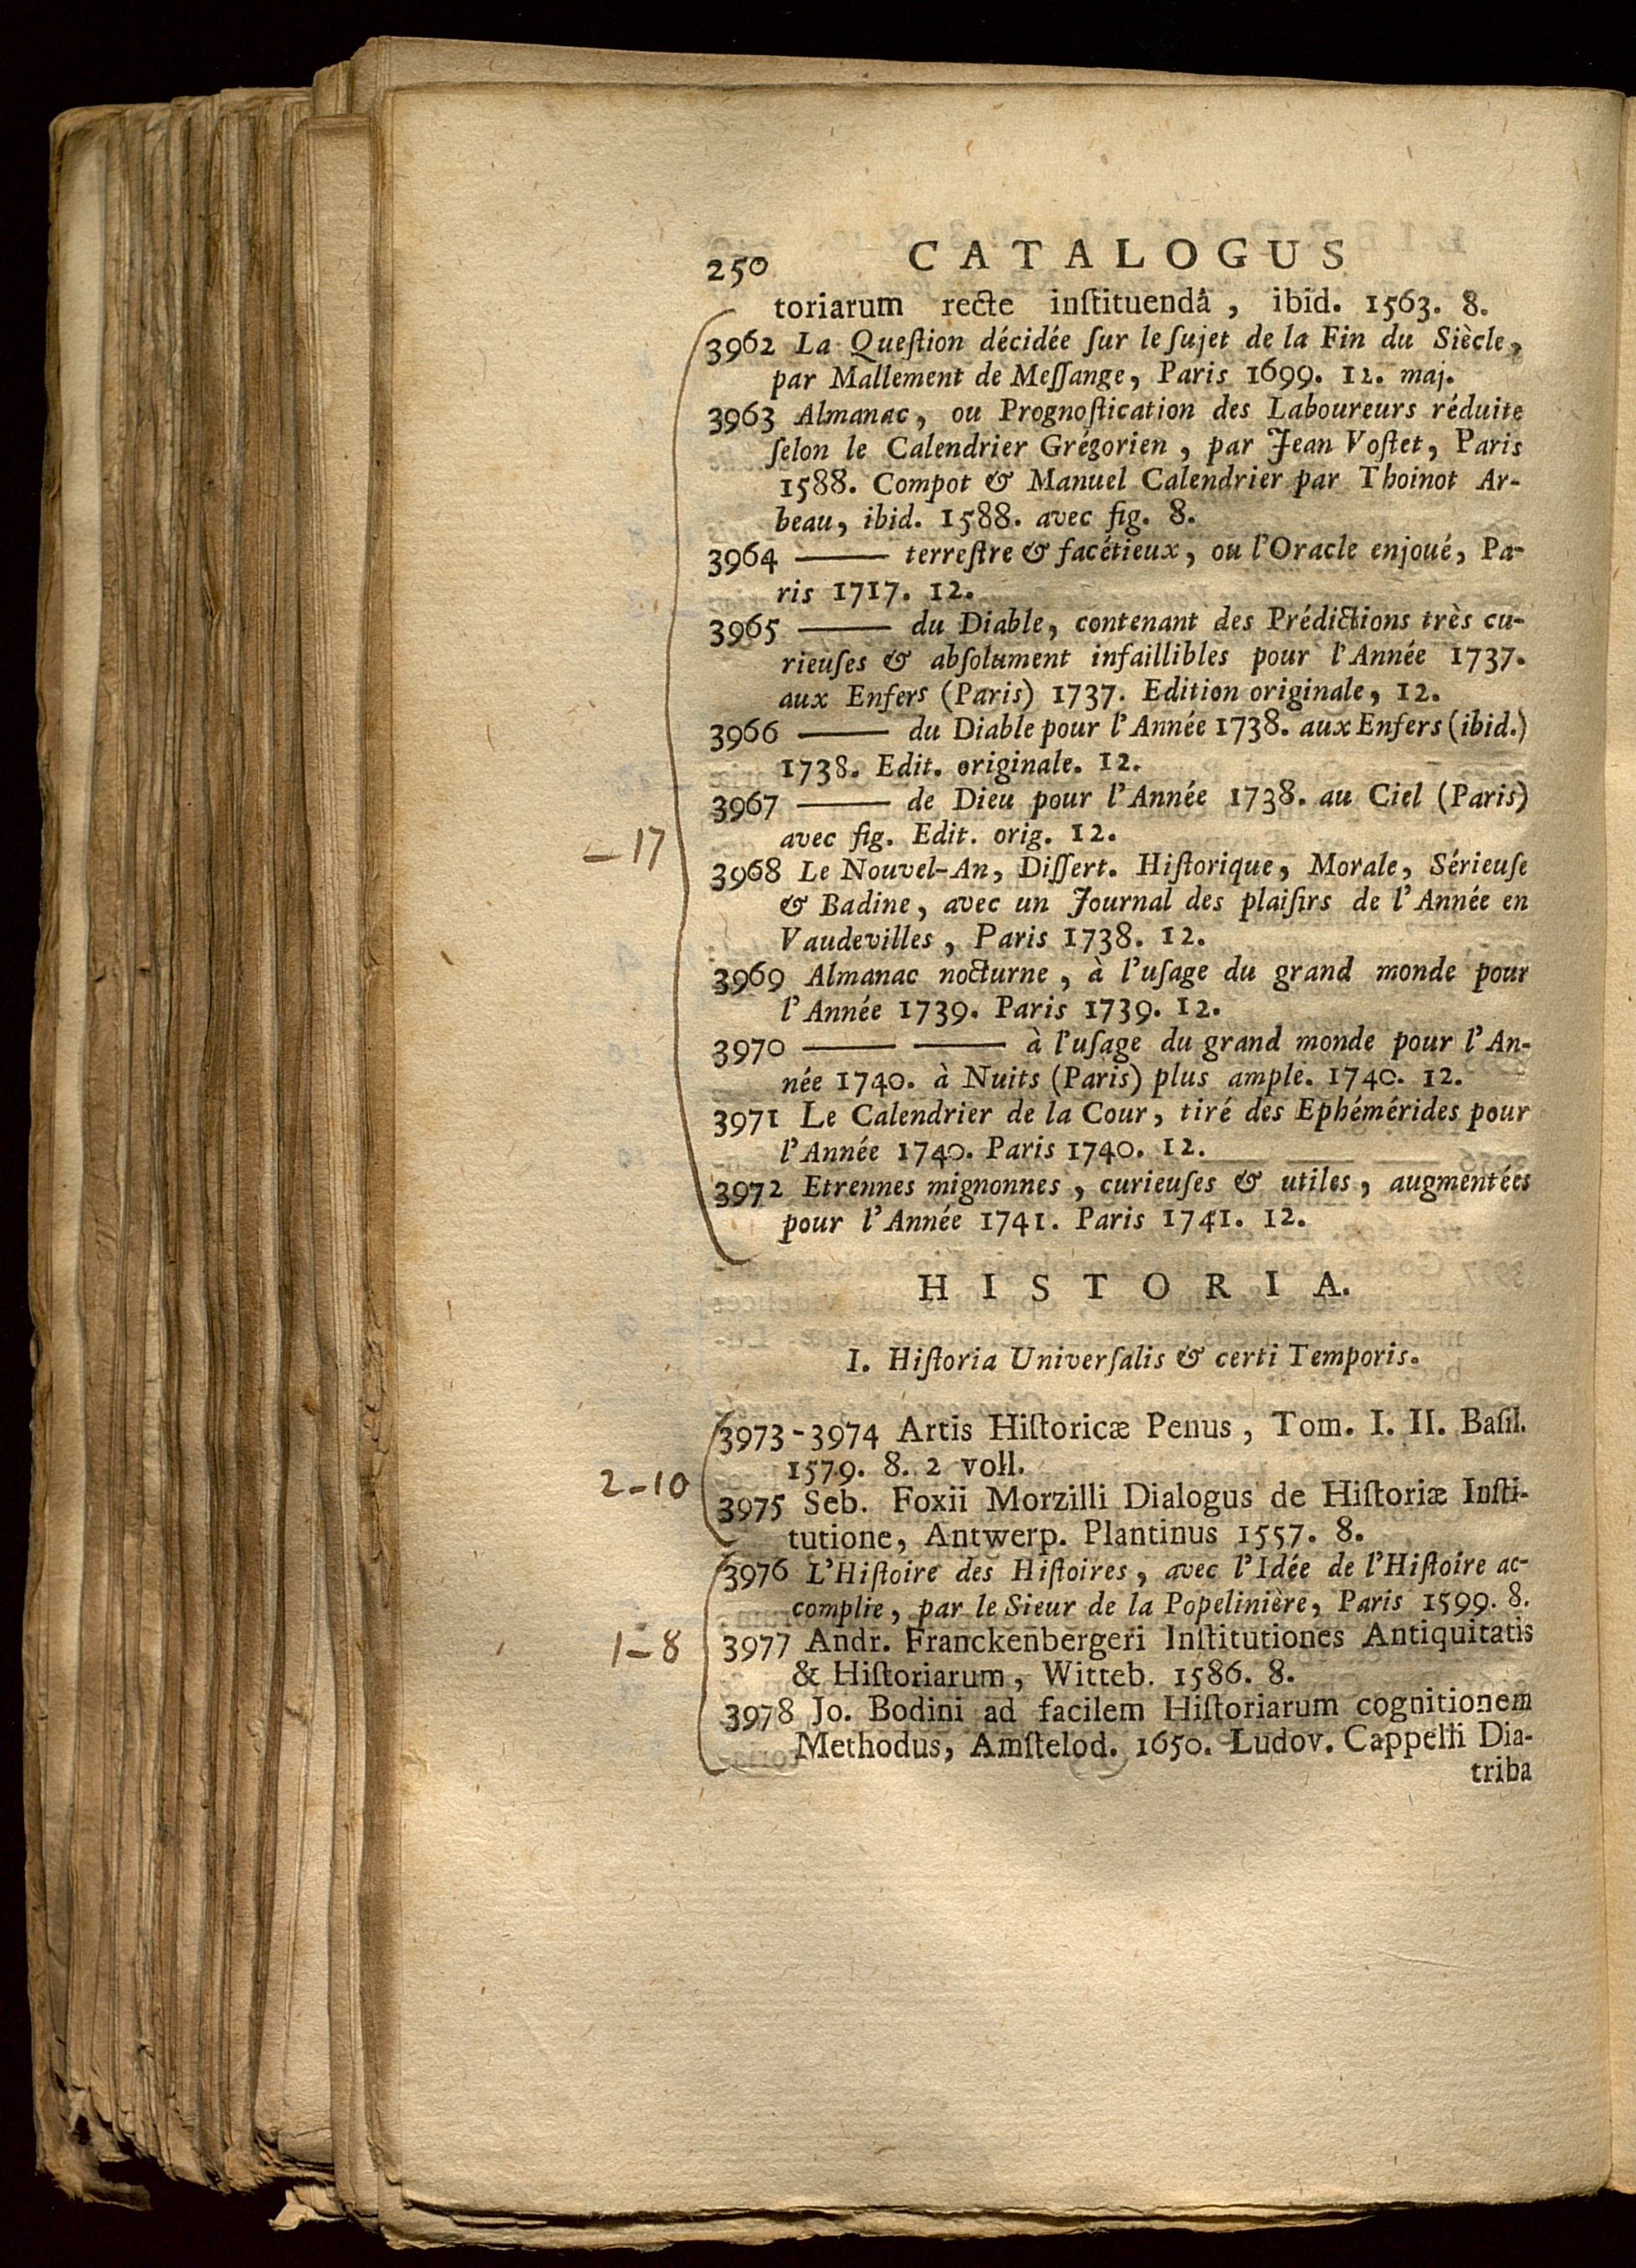 250 CATALOGUS
toriarum recte inſtituendâ, ibid. 1563. 8.
3962 La Queſtion décidée ſur le ſujet de la Fin du Siècle,
par Mallement de Meſſange, Paris 1699. 12. maj.
3963 Almanac, ou Prognoſtication des Laboureurs réduite
ſelon le Calendrier Grégorien, par Jean Voſtet, Paris
1588. Compot & Manuel Calendrier par Thoinot Ar-
beau, ibid. 1588. avec fig. 8.
3964 —— terreſtre & facétieux, ou l'Oracle enjoué, Pa-
ris 1717. 12.
3965 —— du Diable, contenant des Prédictions très cu-
rieuſes & abſolument infaillibles pour l'Année 1737.
aux Enfers (Paris) 1737. Edition originale, 12.
3966 —— du Diable pour l'Année 1738. aux Enfers (ibid.)
1738. Edit. originale. 12.
3967 —— de Dieu pour l'Année 1738. au Ciel (Paris)
avec fig. Edit. orig. 12.
– 17
3968 Le Nouvel-An, Diſſert. Hiſtorique, Morale, Sérieuſe
& Badine, avec un Journal des plaiſirs de l'Année en
Vaudevilles, Paris 1738. 12.
3969 Almanac nocturne, à l'uſage du grand monde pour
l'Année 1739. Paris 1739. 12.
3970 —— —— à l'uſage du grand monde pour l'An-
née 1740. à Nuits (Paris) plus ample. 1740. 12.
3971 Le Calendrier de la Cour, tiré des Ephémérides pour
l'Année 1740. Paris 1740. 12.
3972 Etrennes mignonnes, curieuſes & utiles, augmentées
pour l'Année 1741. Paris 1741. 12.
HISTORIA.
I. Hiſtoria Univerſalis & certi Temporis.
3973-3974 Artis Hiſtoricæ Penus, Tom. I. II. Baſil.
1579. 8. 2 voll.
2–10
3975 Seb. Foxii Morzilli Dialogus de Hiſtoriæ Inſti-
tutione, Antwerp. Plantinus 1557. 8.
3976 L'Hiſtoire des Hiſtoires, avec l'Idée de l'Hiſtoire ac-
complie, par le Sieur de la Popelinière, Paris 1599. 8.
1–8
3977 Andr. Franckenbergeri Inſtitutiones Antiquitatis
& Hiſtoriarum, Witteb. 1586. 8.
3978 Jo. Bodini ad facilem Hiſtoriarum cognitionem
Methodus, Amſtelod. 1650. Ludov. Cappelli Dia-
triba